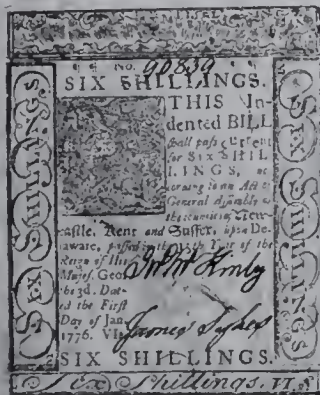 No. 90839
SIX SHILLINGS.
THIS In-
dented BILL
shall pass current
for SIX SHIL-
LINGS, ac-
cording to an Act of
General Assembly of
the counties of New-
castle, Kent and Sussex, upon De-
laware, passed in the 15th Year of the
Reign of His
Majest. Geo.
the 3d. Dat-
ed the First
Day of Jan.
1776. VIs
James Sykes
SIX SHILLINGS.
Six Shillings. VI.s
SIX SHILLINGS
SIX SHILLINGS